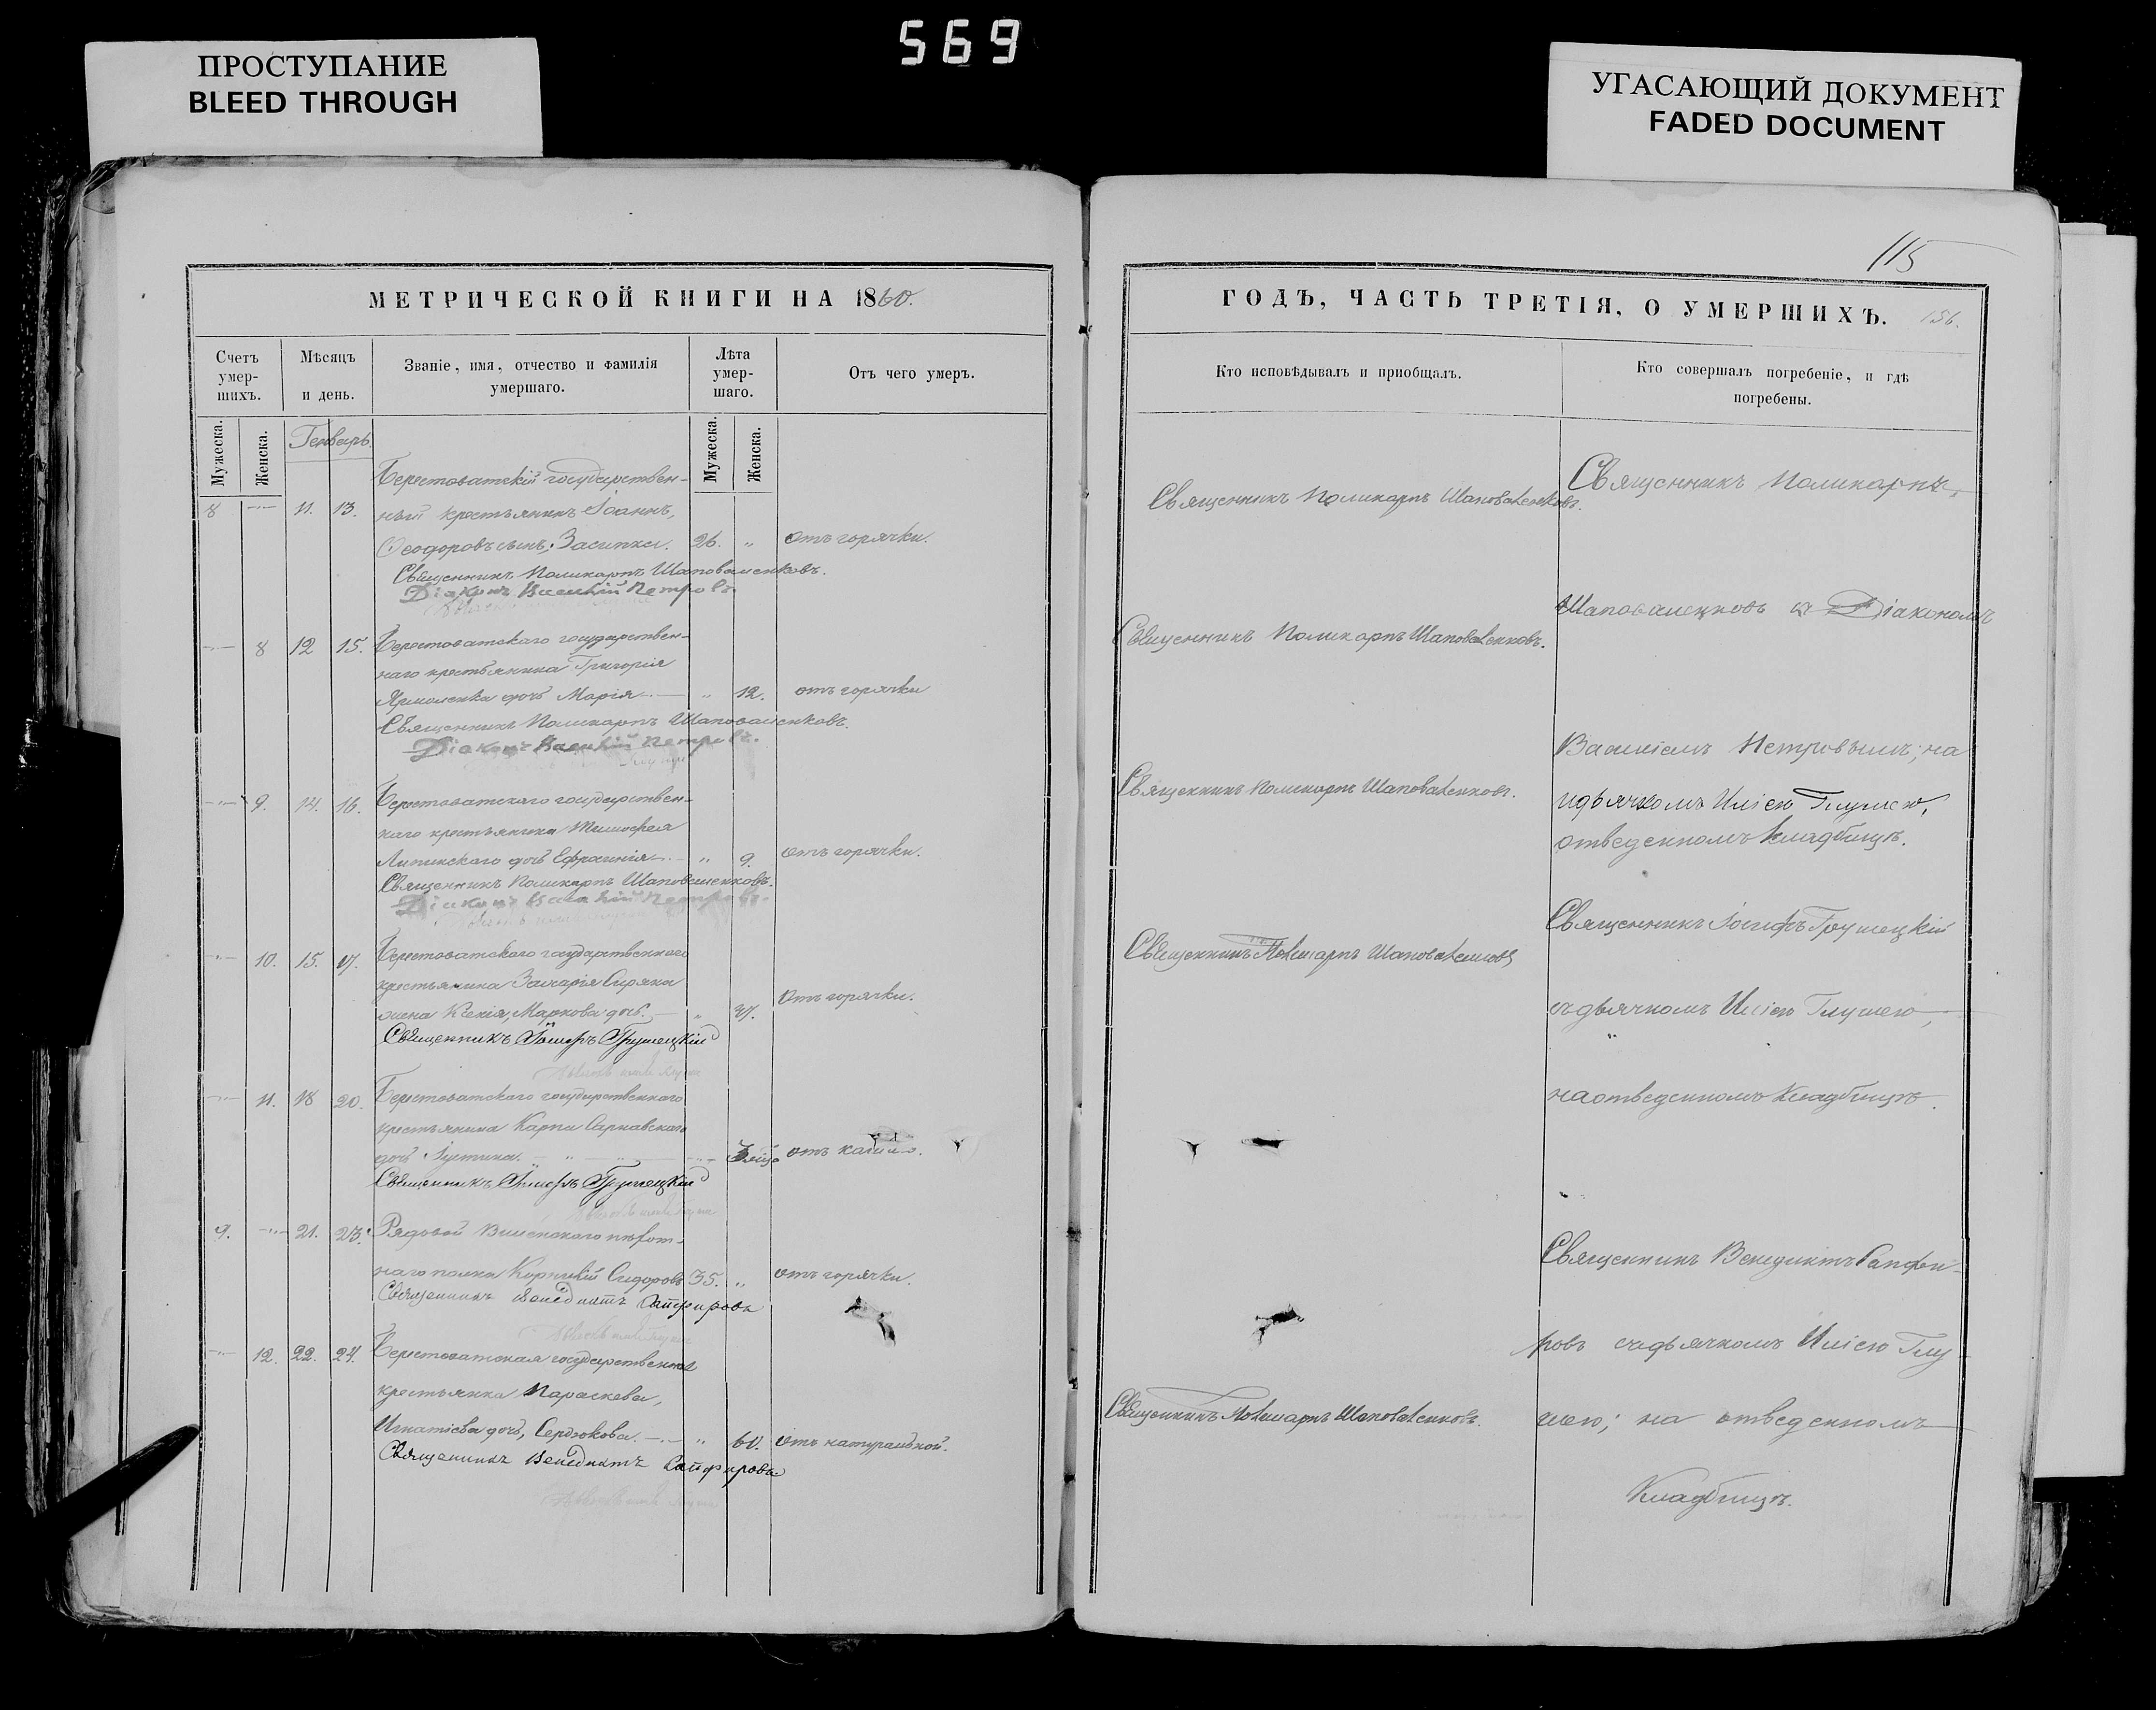 569
ПРОСТУПАНИЕ
BLEED THROUGH
УГАСАЮЩИЙ ДОКУМЕНТ
FADED DOCUMENT
МЕТРИЧЕСКОЙ КНИГИ НА 1860.
Счетъ умер-шихъ.
Мѣсяцъ и день.
Званіе, имя, отчество и фамилія умершаго.
Лѣта умер-шаго.
Отъ чего умеръ.
Мужеска.
Женска.
Генварь
Мужеска.
Женска.
Берестоватскій государствен-
8 11. 13. ный крестьянинъ Іоаннъ,
Ѳеодоровъ сынъ, Засипка. 26. „ отъ горячки.
Священникъ Поликарпъ Шаповаленковъ.
Діаконъ Василій Петровъ.
8 12 15. Берестоватскаго государствен-
наго крестьянина Григорія
Ярмоленка дочь Марія „ 12. отъ горячки
Священникъ Поликарпъ Шаповаленковъ.
Діаконъ Василій Петровъ.
9. 14. 16. Берестоватскаго государствен-
наго крестьянина Тимофея
Липинскаго дочь Ефросинія „ 9. отъ горячки.
Священникъ Поликарпъ Шаповаленковъ.
Діаконъ Василій Петровъ.
10. 15. 17. Берестоватскаго государственнаго
крестьянина Захарія Сиряка
жена Ксенія, Маркова дочь. „ 37. Отъ горячки.
Священникъ Іосифъ Грушецкій
11. 18 20. Берестоватскаго государственнаго
крестьянина Карпа Сарнавскаго
дочь Іустина. отъ кашлю.
Священникъ Іосифъ Грушецкій
9. 21. 23. Рядовой Виленскаго пѣхот-
наго полка Корнилій Сидоровъ 35. „ отъ горячки.
Священникъ Венедиктъ Сапфировъ
12. 22. 24. Берестоватская государственная
крестьянка Параскева,
Игнатіева дочь, Сердюкова. „ 60. Отъ натуральной.
Священникъ Венедиктъ Сапфировъ
115
ГОДЪ, ЧАСТЬ ТРЕТІЯ, О УМЕРШИХЪ.
156.
Кто исповѣдывалъ и приобщалъ.
Кто совершалъ погребеніе, и гдѣ погребены.
Священникъ Поликарпъ Шаповаленковъ.
Священникъ Поликарпъ Шаповаленковъ.
Священникъ Поликарпъ Шаповаленковъ.
Священникъ Поликарпъ Шаповаленковъ
Священникъ Поликарпъ Шаповаленковъ.
Священникъ Поликарпъ
Шаповаленковъ съ Діакономъ
Василіемъ Петровымъ; на
идьячкомъ Иліею Глушею,
отведенномъ кладбищѣ.
Священникъ Іосифъ Грушецкій
съдьячкомъ Иліею Глушею,
наотведенномъ Кладбищѣ.
Священникъ Венедиктъ Сапфи-
ровъ съдьячкомъ Иліею Глу
шею; на отведенномъ
Кладбищѣ.